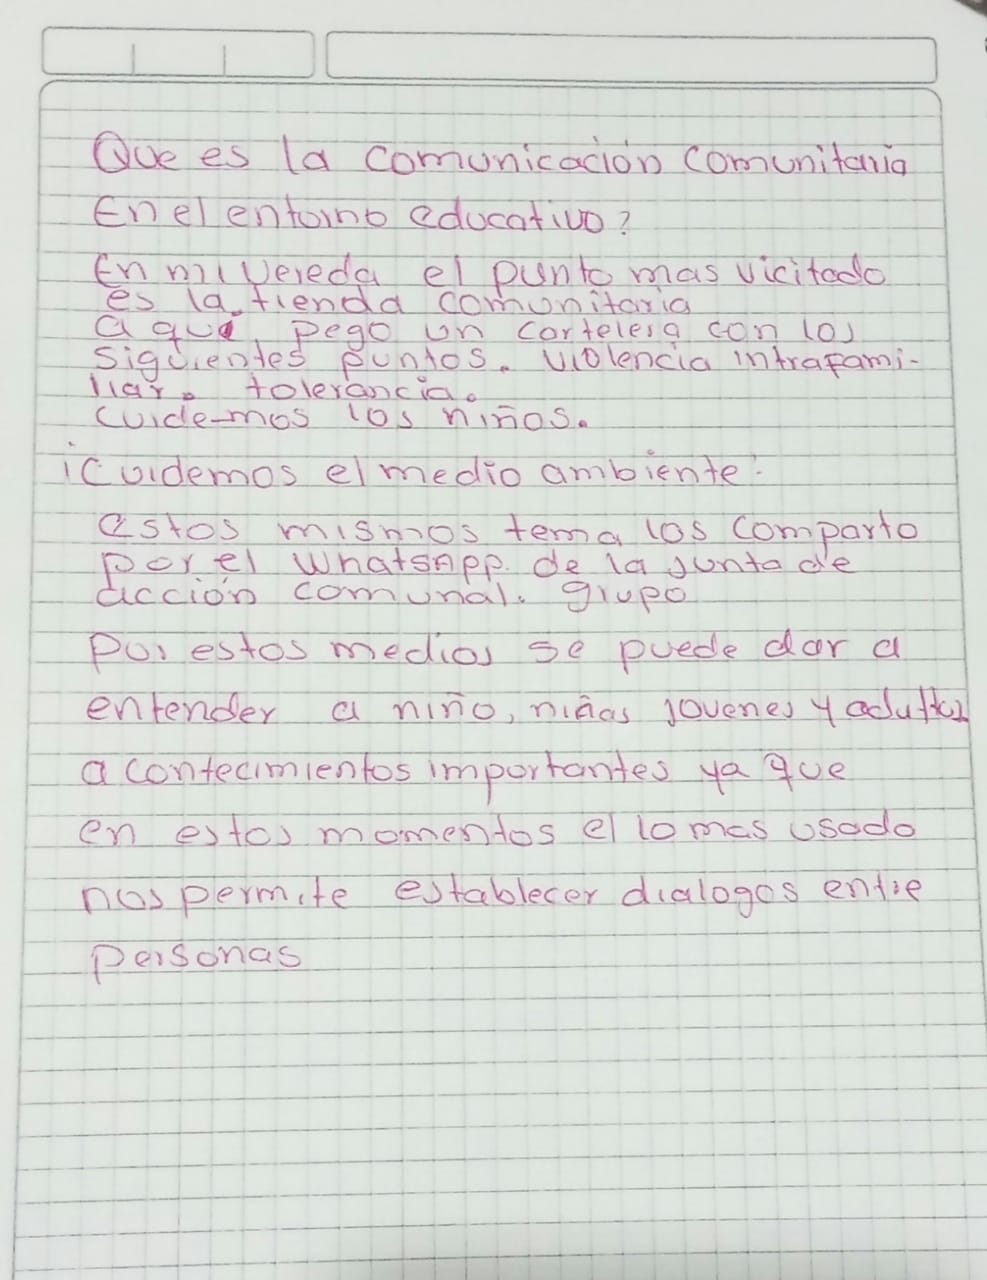 Que es la comunicación comunitaria
En el entorno educativo?
En mi vereda el punto mas vicitado
es la tienda comunitaria
a qui pego un cartelera con los
siguientes puntos. violencia intrafami-
liar. tolerancia.
cuidemos los niños.
¡Cuidemos el medio ambiente!
estos mismos tema los comparto
por el Whatsapp. de la junta de
acción comunal. grupo
Por estos medios se puede dar a
entender a niño, niñas jovenes y adultos
a contecimientos importantes ya que
en estos momentos el lo mas usado
nos permite establecer dialogos entre
personas